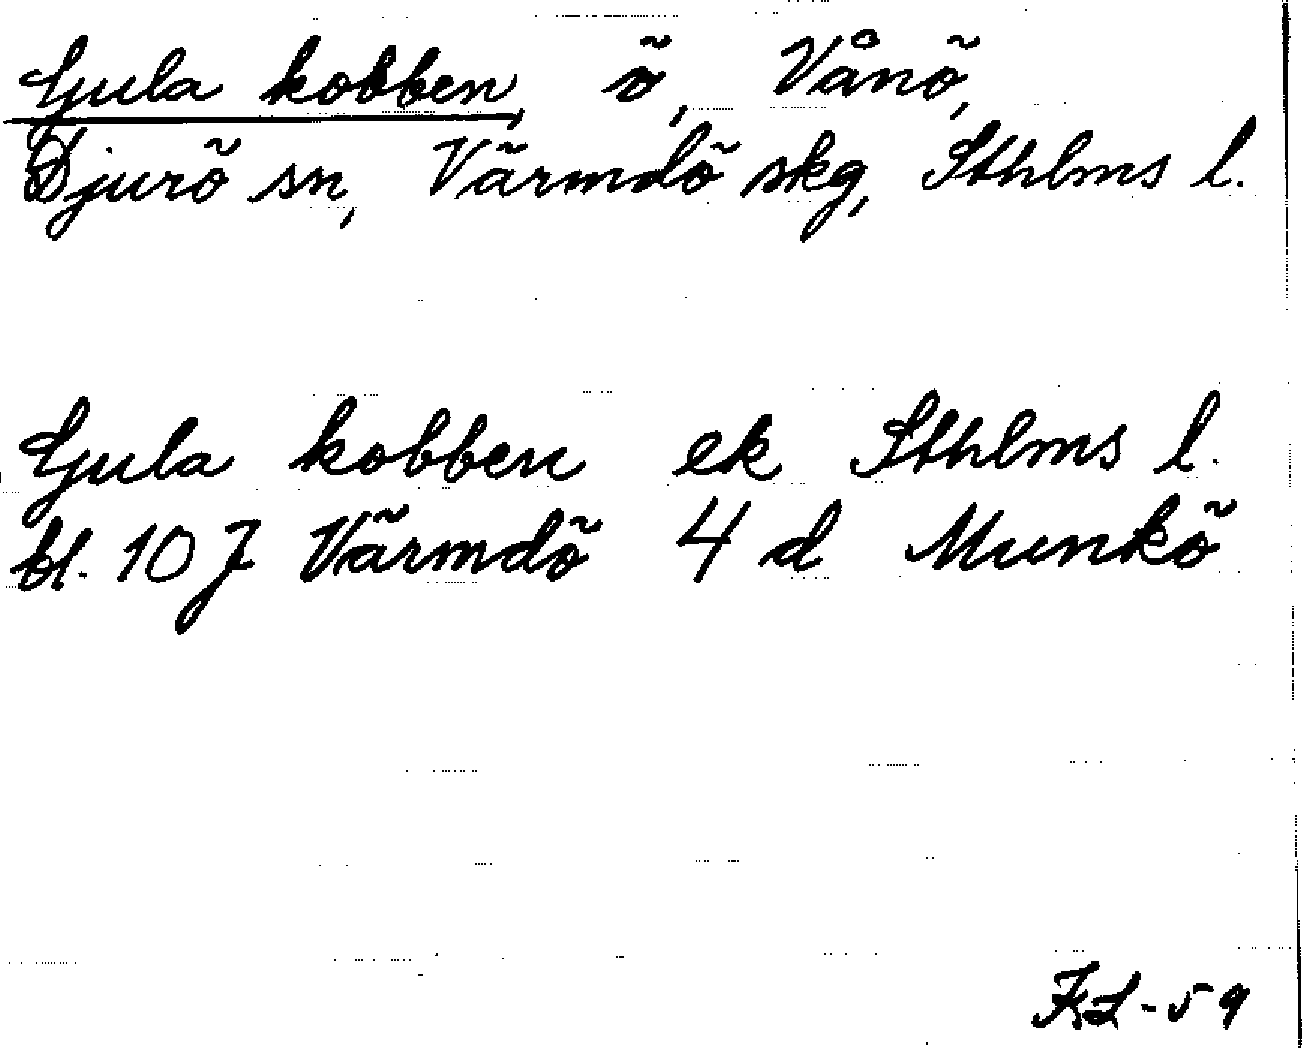 Gula kobben, ö, Vånö,
Djurö sn, Värmdö skg, Sthlms l.
Gula kobben ek Sthlms l.
bl. 10 J Värmdö 4 d Munkö
KL-59